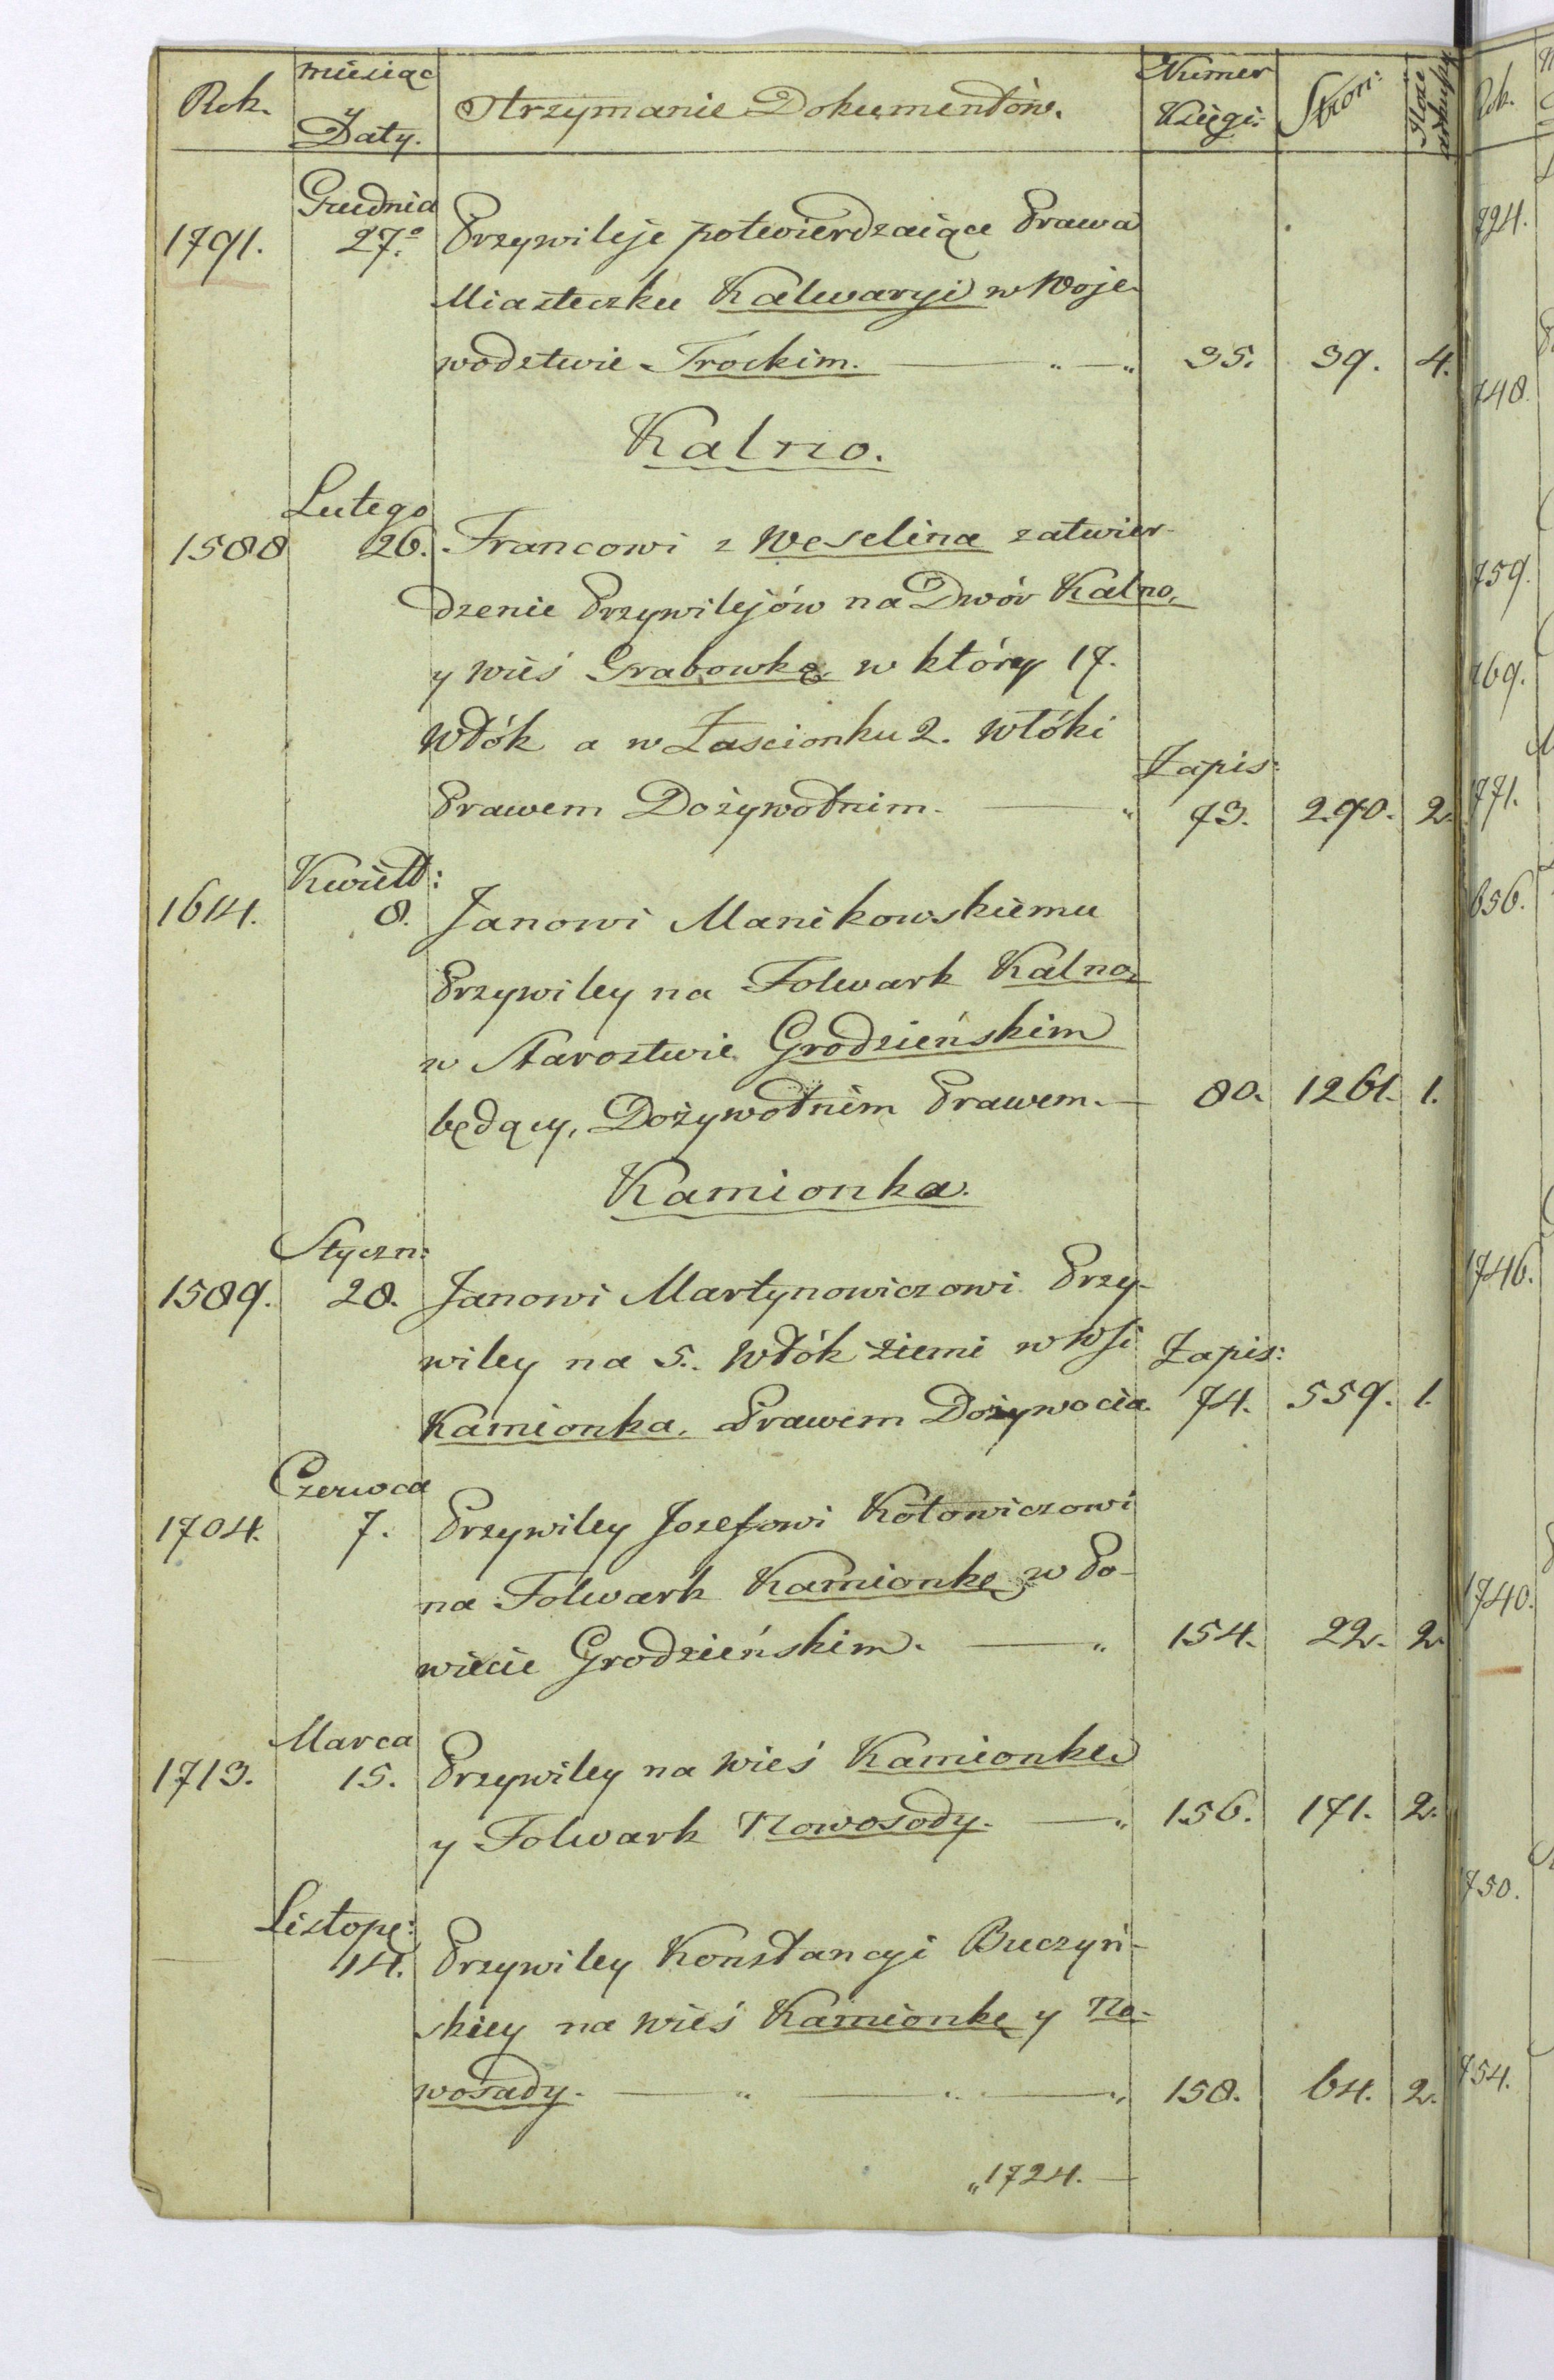 Rok. miesiąc y Daty. Otrzymanie Dokumentów. Numer Księgi: Stron: Ilość arkuszy
Grudnia
1791. 27.° Przywileje potwierdzaiące Prawa
Miasteczku Kalwaryi w Woje-
wodztwie Trockim. 35. 39. 4.
Kalno.
Lutego
1588 26. Francowi z Weselina zatwier-
dzenie Przywilejów na Dwór Kalno,
y wieś Grabowkę, w który 17.
Włók a w Zascionku 2. Włóki
Prawem Dożywotnim. Zapis: 73. 290. 2.
Kwiet:
1614. 8. Janowi Manikowskiemu
Przywiley na Folwark Kalno,
w Starostwie Grodzieńskim
będący, Dożywotnim Prawem. 80. 1261. 1.
Kamionka.
Styczn:
1589. 28. Janowi Martynowiczowi Przy-
wiley na 5. Włók ziemi w Wsi
Kamionka, Prawem Dożywocia. Zapis: 74. 559. 1.
Czerwca
1704. 7. Przywiley Jozefowi Kotowiczowi
na Folwark Kamionkę w Po-
wiecie Grodzieńskim. 154. 22. 2.
Marca
1713. 15. Przywiley na wieś Kamionkę
y Folwark Nowosody. 156. 171. 2.
Listop:
14. Przywiley Konstancyi Buczyń-
skiey na wieś Kamionkę y No-
wosady. 158. 64. 2.
„1724.
Rok.
724.
748.
759.
769.
771.
656.
1746.
1740.
750.
754.